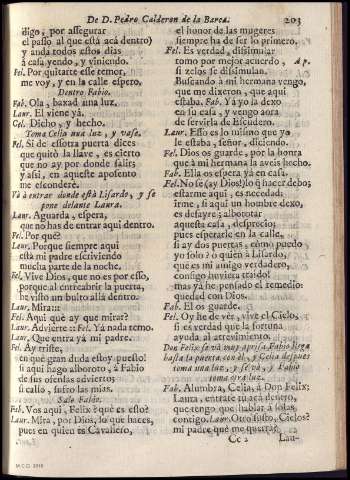 De D. Pedro Calderon de la Barca. 203
digo, por assegurar
el passo al que está acà dentro)
y anda todos estos dias
à casa yendo, y viniendo.
Fel. Por quitarte esse temor,
me voy, y en la calle espero.
Dentro Fabio.
Fab. Ola, baxad una luz.
Laur. El viene yà.
Cel. Dicho, y hecho.
Toma Celia una luz, y vase.
Fel. Si de essotra puerta dices
que quitò la llave, es cierto
que no ay por donde salir;
y assi, en aqueste aposento
me esconderè.
Và à entrar donde està Lisardo, y se
pone delante Laura.
Laur. Aguarda, espera,
que no has de entrar aqui dentro.
Fel. Por què?
Laur. Porque siempre aqui
està mi padre escriviendo
mucha parte de la noche.
Fel. Vive Dios, que no es por esso,
porque al entreabrir la puerta,
he visto un bulto allà dentro.
Laur. Mira::
Fel. Aqui què ay que mirar?
Laur. Advierte:: Fel. Yà nada temo.
Laur. Que entra yà mi padre.
Fel. Ay triste,
en què gran duda estoy puesto!
si aqui hago alboroto, à Fabio
de sus ofensas advierto;
si callo, sufro las mias.
Sale Fabio.
Fab. Vos aqui, Felix? què es esto?
Laur. Mira, por Dios, lo que haces,
pues en quien es Cavallero,
el honor de las mugeres
siempre ha de ser lo primero.
Fel. Es verdad, dissimular
tomo por mejor acuerdo, Ap.
si zelos se dissimulan.
Buscando à mi hermana vengo,
que me dixeron, que aqui
estaba. Fab. Yà yo la dexo
en su casa, y vengo aora
de servirla de Escudero.
Laur. Esso es lo mismo que yo
le estaba, señor, diciendo.
Fel. Dios os guarde, por la honra
que à mi hermana la aveis hecho.
Fab. Ella os espera yà en casa.
Fel. No sè (ay Dios!) lo q̃ hacer debo;
estarme aqui, es necedad;
irme, si aqui un hombre dexo,
es desayre; alborotar
aquesta casa, desprecio;
pues esperarle en la calle,
si ay dos puertas, còmo puedo
yo solo? ò quien à Lisardo,
que es mi amigo verdadero,
consigo huviera traido!
mas yà he pensado el remedio:
quedad con Dios.
Fab. El os guarde.
Fel. Oy he de vèr, vive el Cielo,
si es verdad que la fortuna
ayuda al atrevimiento.
Don Felix se và muy aprisa, Fabio llega
hasta la puerta con èl, y Celia despues
toma una luz, y se và, y Fabio
toma otra luz.
Fab. Alumbra, Celia, à Don Felix;
Laura, entrate tu acà dentro,
que tengo que hablar à solas
contigo. Laur. Otro susto, Cielos?
mi padre què me querrà?
Cc 2 Lau-